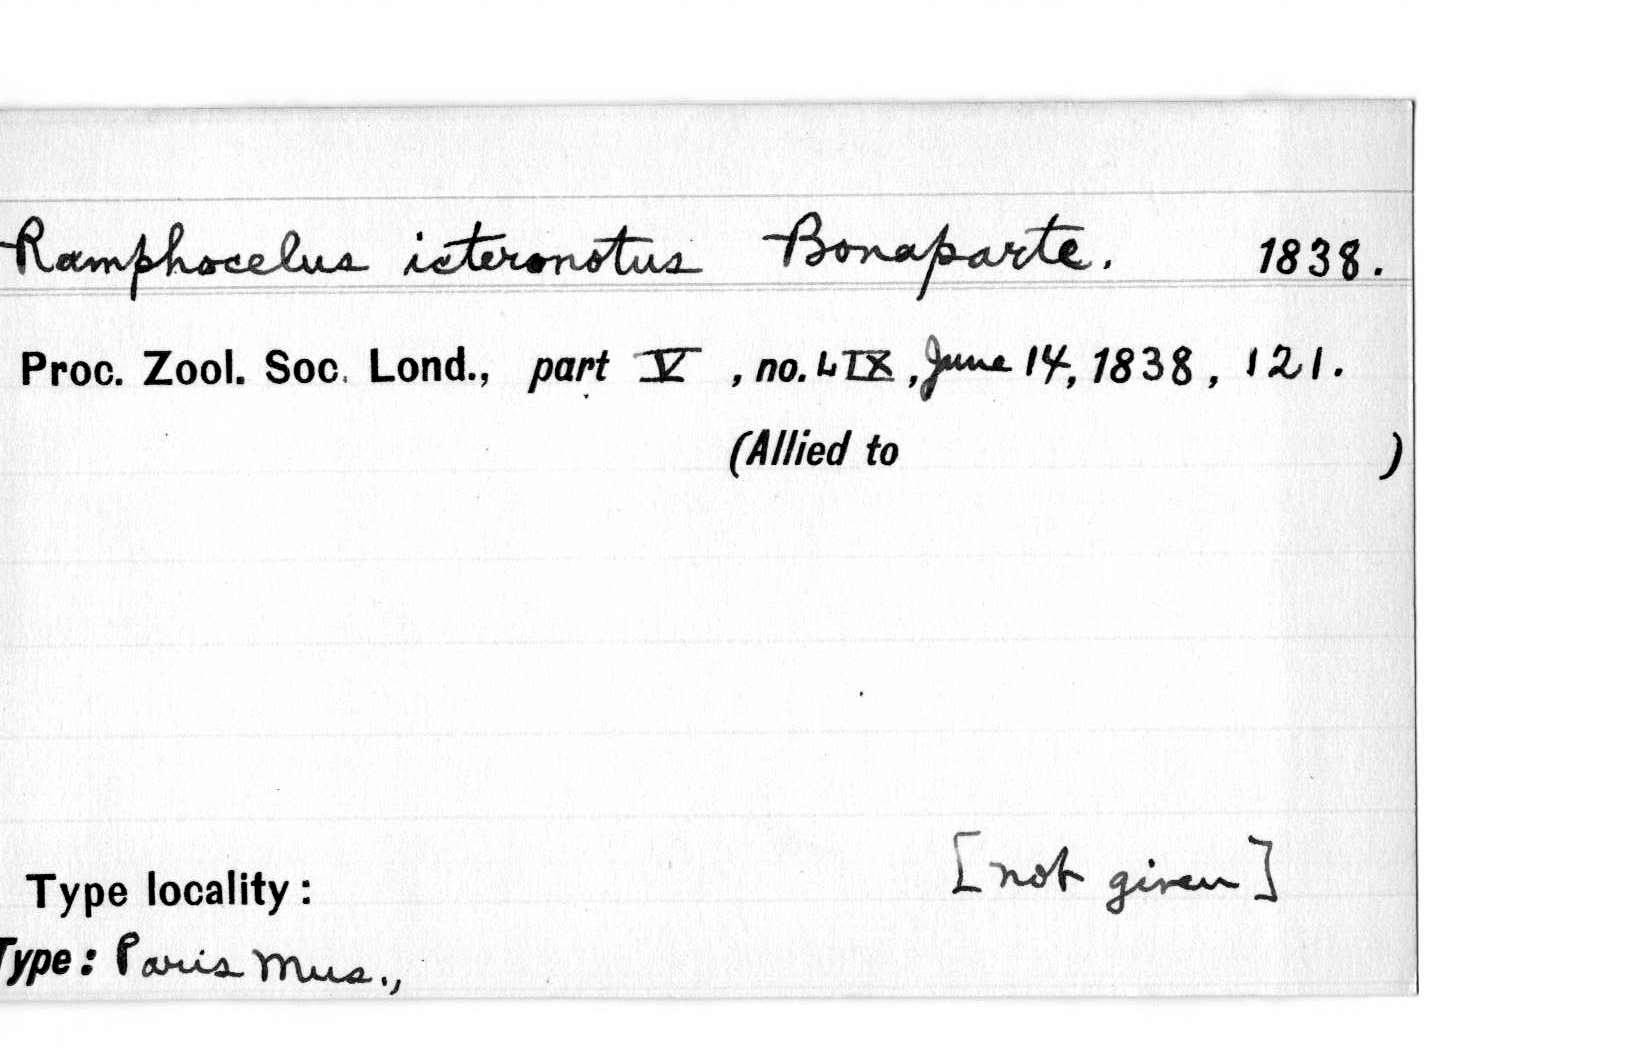 Ramphocelus icteronotus Bonaparte. 1838.
Proc. Zool. Soc. Lond., part V, no. LIX, June 14, 1838, 121.
(Allied to )
Type locality: [not given]
Type: Paris Mus.,